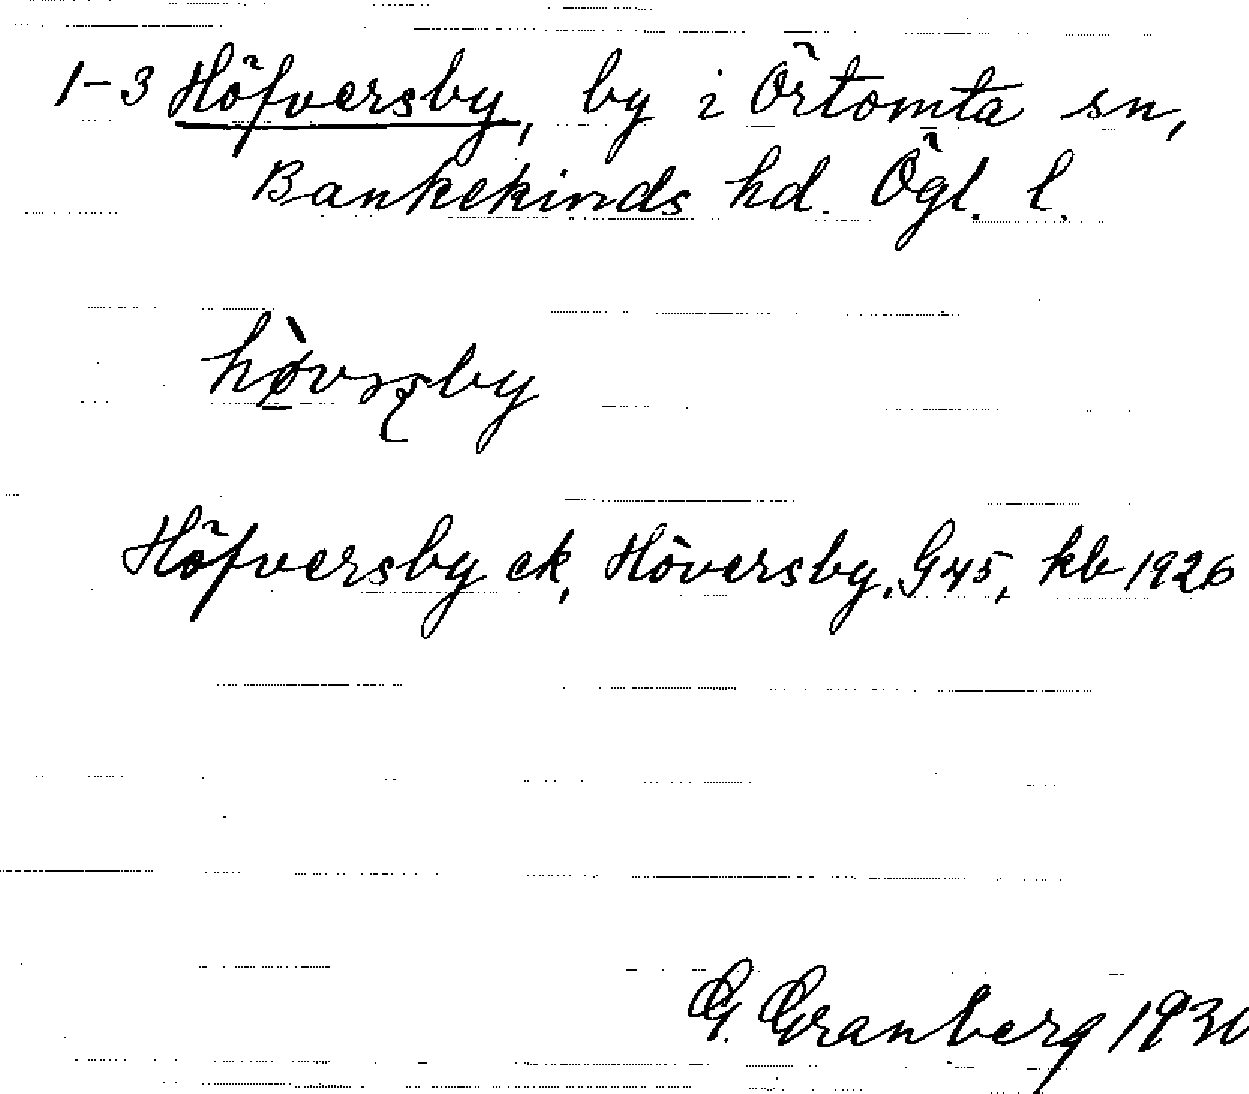 1-3 Höfversby, by i Örtomta sn,
Bankekinds hd. Ögl. l.
Höfversby ek, Höversby. G45, kb 1926
G. Granberg 1930